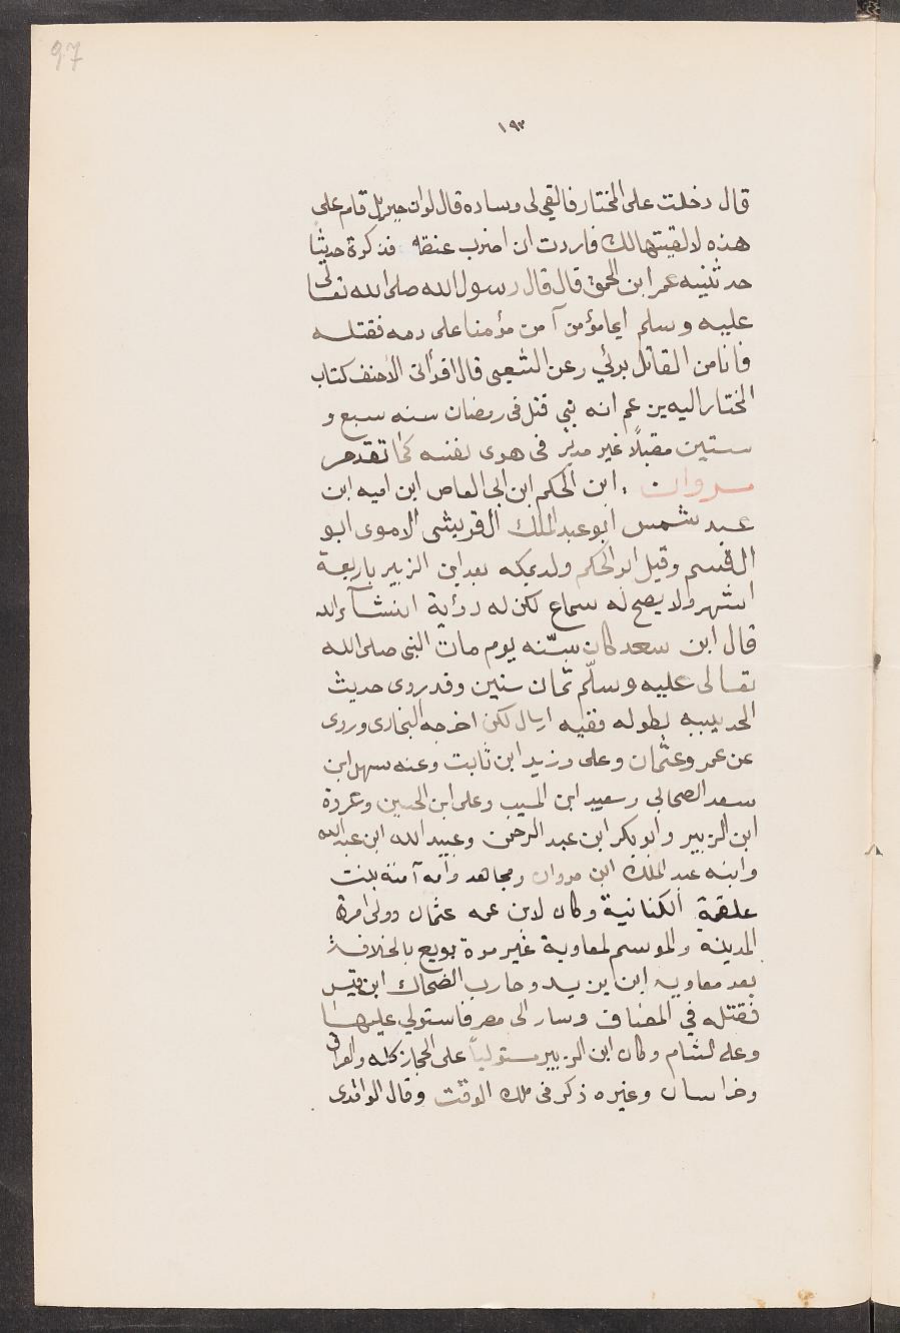 97
١٩٣
قال دخلت على المختار فالقي لى وساده قال لوان جبريل قام على
هذه لالقيتها لك فاردت ان اضرب عنقه فذكرة حديثا
حدثنيه عمر ابن الحمق قال قال رسول الله صلى الله تعالى
عليه وسلم ايما مؤمن آمن مؤمنا على دمه فقتله
فانا من القاتل برئي وعن الشعبى قال اقرأنى الاحنف كتاب
المختار اليه يزعم انه نبي قتل فى رمضان سنه سبع و
ستين مقبلًا غير مدبر فى هوى نفسه كما تقدم
مروان ابن الحكم ابن ابى العاص ابن اميه ابن
عبد شمس ابو عبد الملك القريشى الاموى ابو
القسم وقيل ابو الحكم ولد بمكه بعد ابن الزبير باربعة
اشهر ولا يصح له سماع لكن له رؤية انشآء الله
قال ابن سعد كان سنّه يوم مات النبى صلى الله
تعالى عليه وسلّم ثمان سنين وقد روى حديث
الحديبيه بطوله ففيه ارسال لكن اخرجه البخارى وروى
عن عمر وعثمان وعلى وزيد ابن ثابت وعنه سهل ابن
سعد الصحابى وسعيد ابن المسيب وعلى ابن الحسين وعروة
ابن الزبير وابو بكر ابن عبد الرحمن وعبيد الله ابن عبد الله
وابنه عبد الملك ابن مروان ومجاهد وامه آمنة بنت
علقمة الكنانية وكان لابن عمه عثمان وولى امرة
المدينه والموسم لمعاوية غير مرة بويع بالخلافة
بعد معاويه ابن يزيد وحارب الضحاك ابن قيس
فقتله في المصاف وسار الى مصر فاستولي عليها
وعلى الشام وكان ابن الزبير مستولياً على الحجاز كله والعراق
وخراسان وغيره ذكر فى ملك الوقت وقال الواقدى